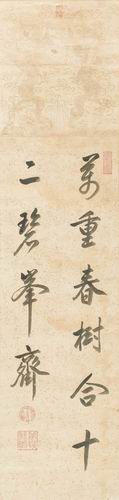 萬重春樹合十
二碧峯齊